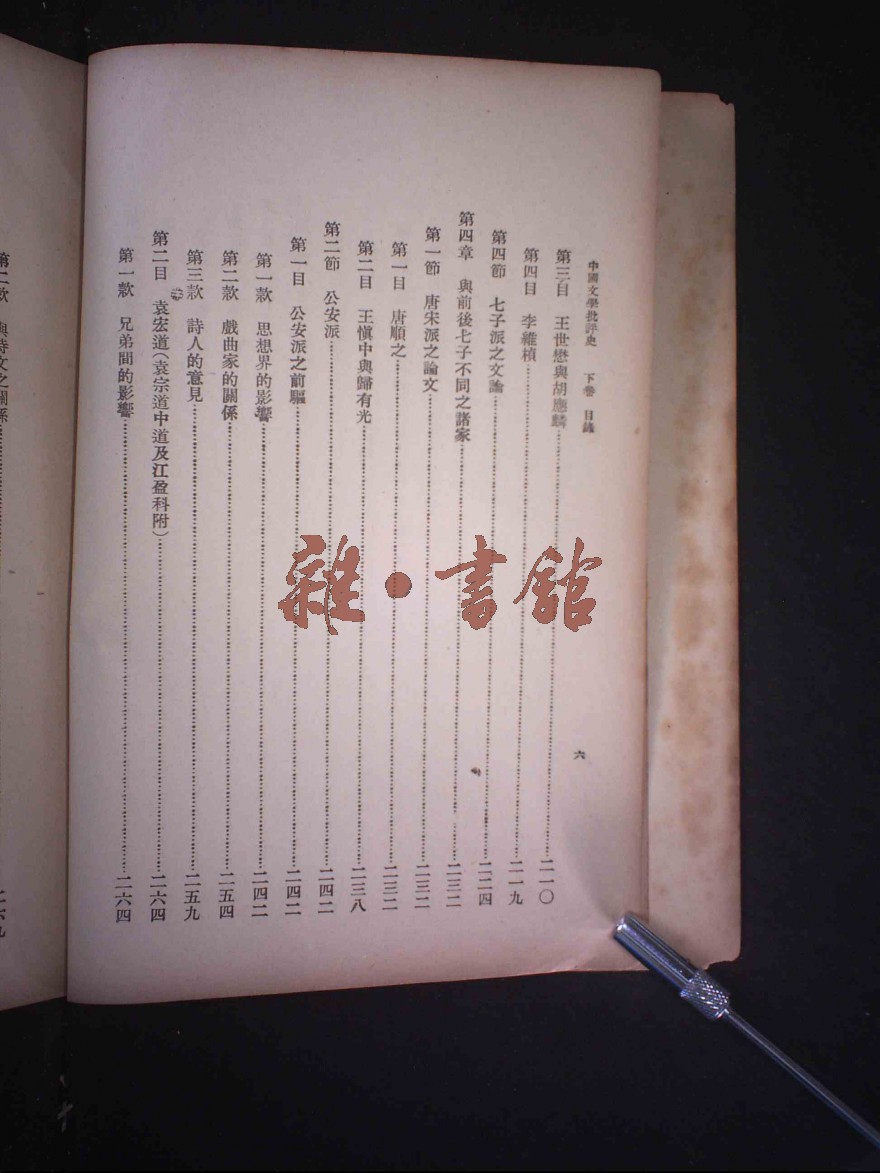 中國文學批評史　下卷　目錄
六
第三目　王世懋與胡應麟……二一〇
第四目　李維楨……二一九
第四節　七子派之文論……二二四
第四章　與前後七子不同之諸家……二三二
第一節　唐宋派之論文……二三二
第一目　唐順之……二三二
第二目　王愼中與歸有光……二三八
第二節　公安派……二四二
第一目　公安派之前驅……二四二
第一款　思想界的影響……二四二
第二款　戲曲家的關係……二五四
第三款　詩人的意見……二五九
第二目　袁宏道（袁宗道中道及江盈科附）……二六四
第一款　兄弟間的影響……二六四
第二款　與詩文之關係……二六九
雜·書館